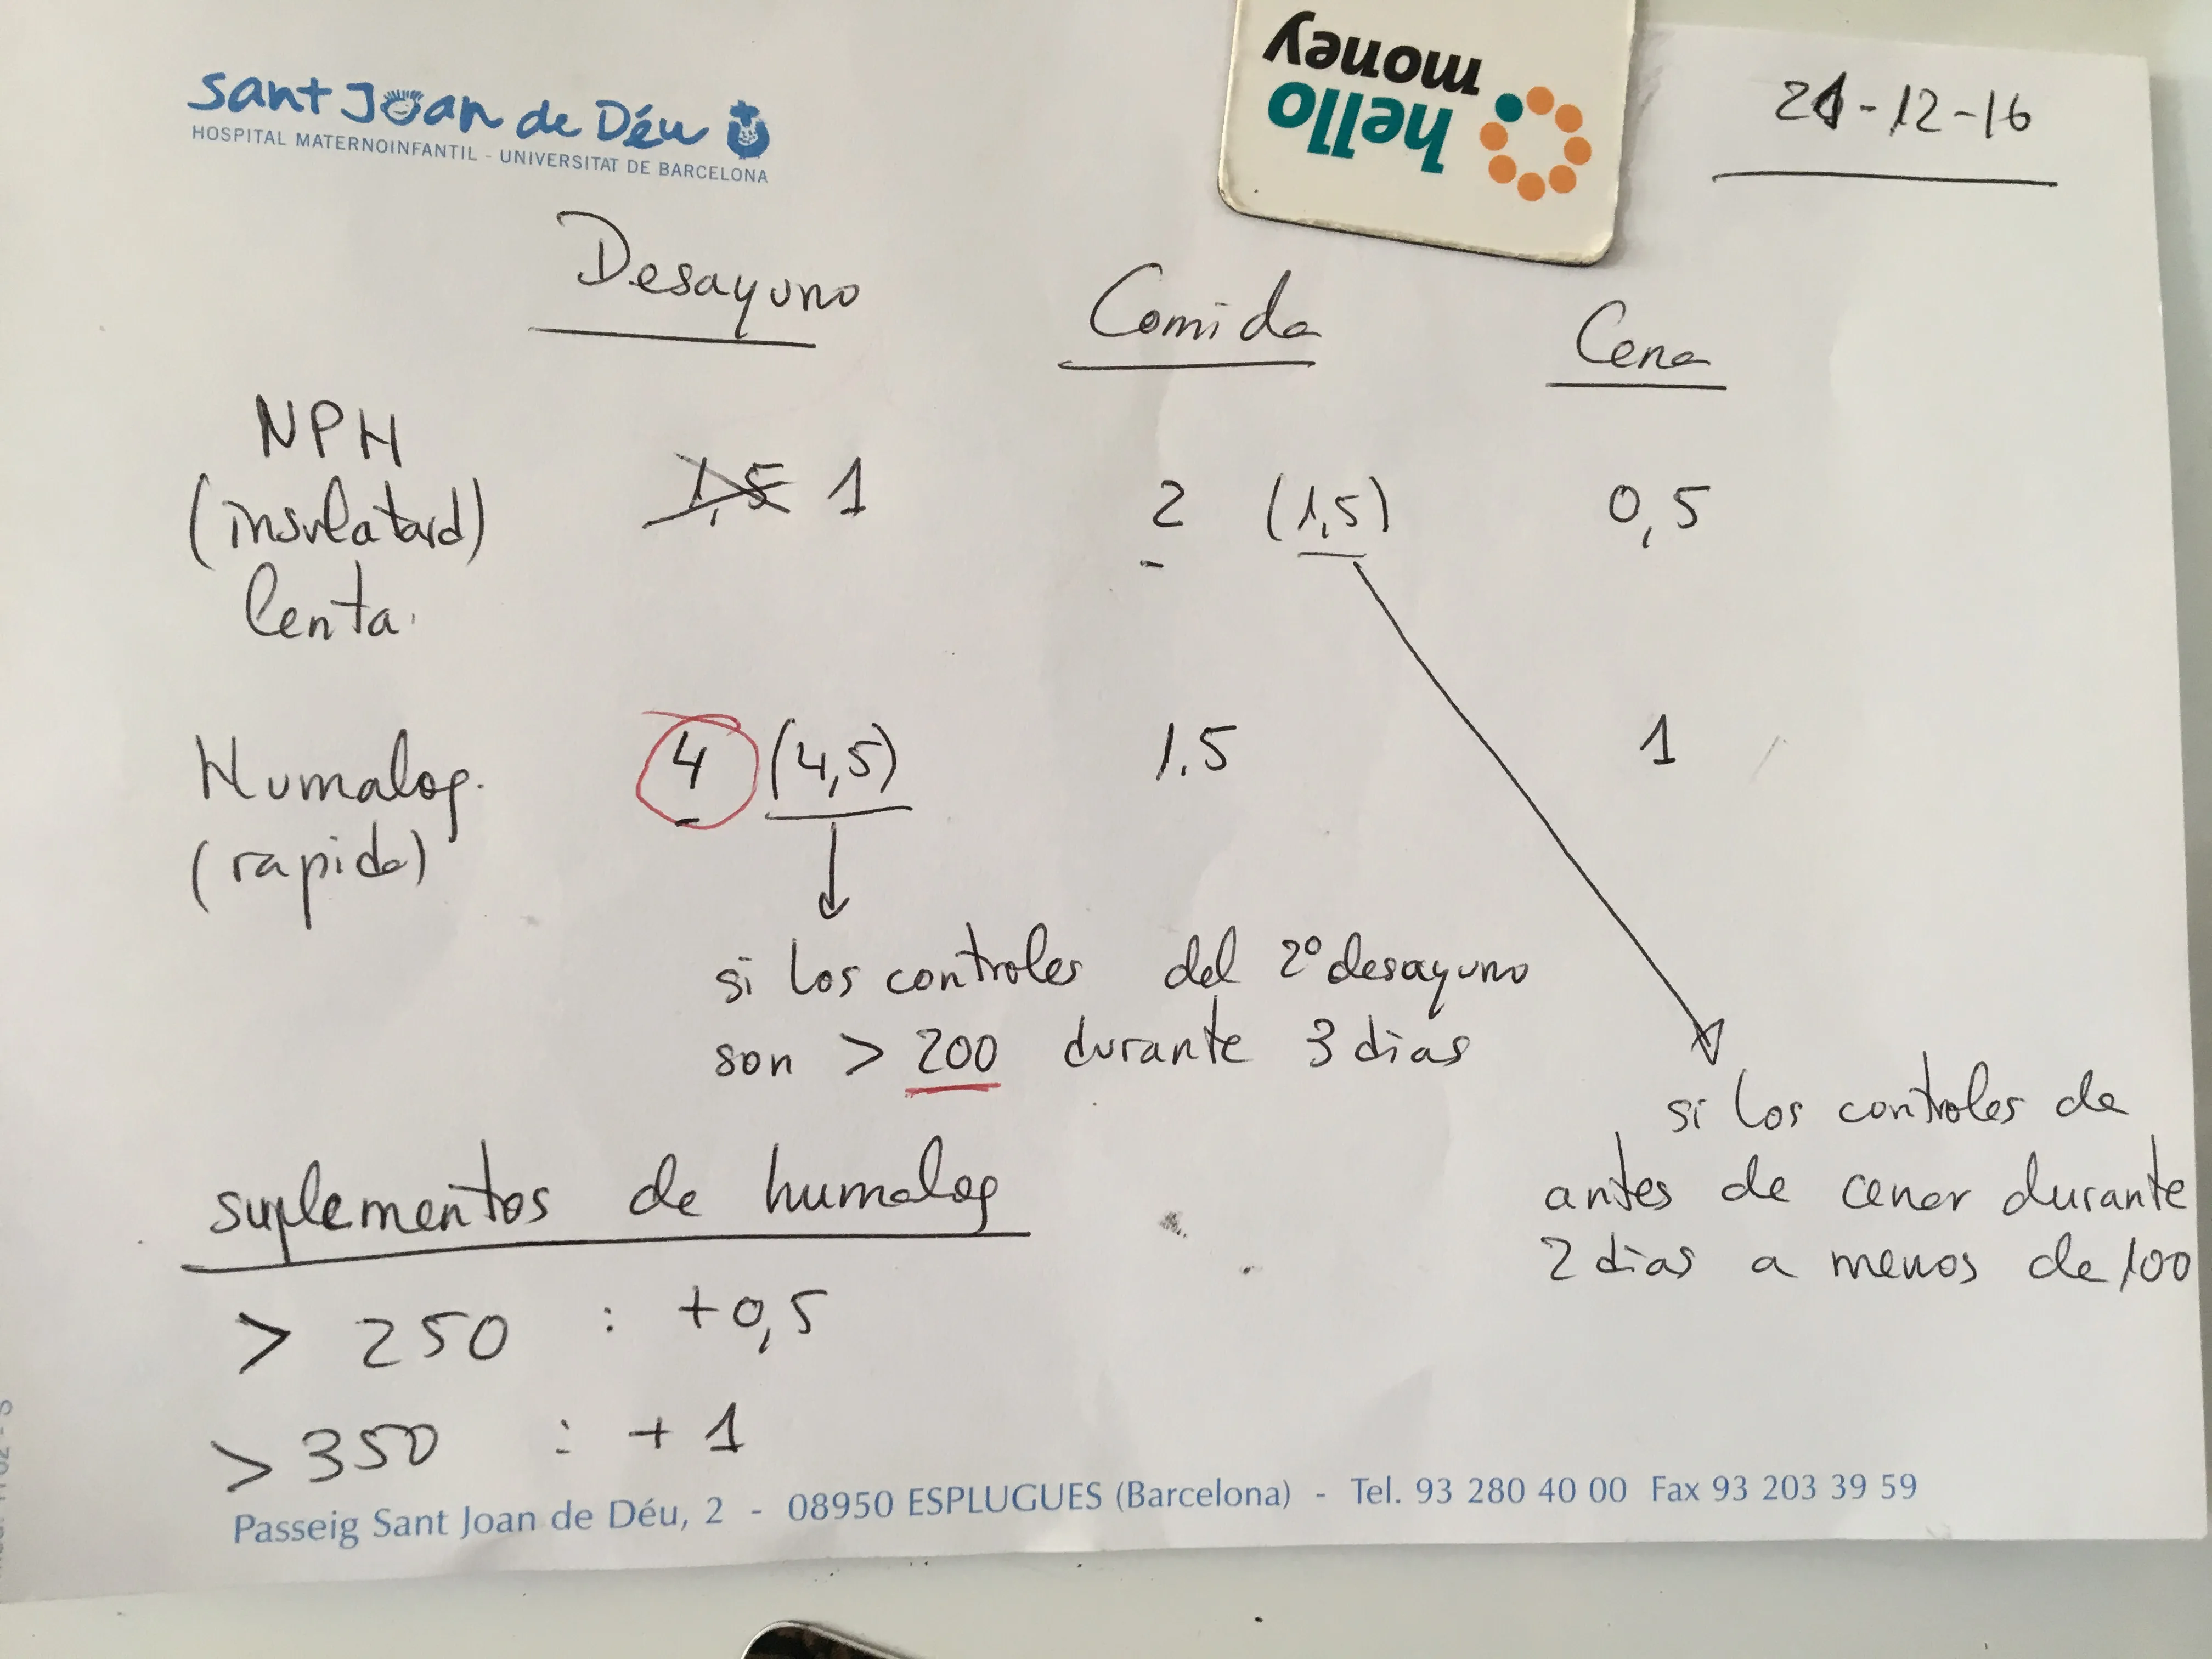 sant Joan de Déu
HOSPITAL MATERNOINFANTIL - UNIVERSITAT DE BARCELONA
hello
money
21-12-16
Desayuno Comida Cena
NPH
(insulatard)
lenta.
1,5 1 2 (1,5) 0,5
Humalog.
(rapida)
4 (4,5) 1.5 1
si los controles del 2º desayuno
son > 200 durante 3 dias
si los controles de
antes de cenar durante
2 dias a menos de 100
suplementos de humalog
> 250 : +0,5
> 350 : +1
Passeig Sant Joan de Déu, 2 - 08950 ESPLUGUES (Barcelona) - Tel. 93 280 40 00 Fax 93 203 39 59